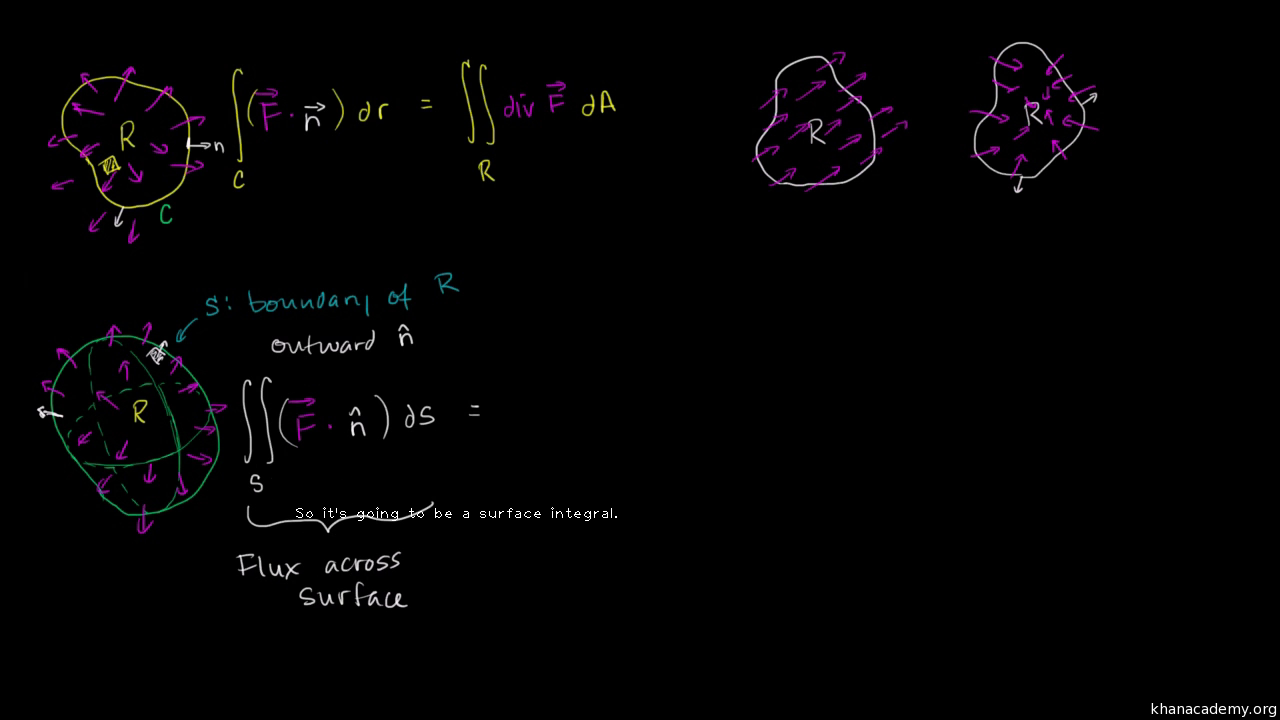 R
n
C
∫_C (F⃗ · n⃗) dr = ∬_R div F⃗ dA
R
R
S: boundary of R
outward n̂
R
∬_S (F⃗ · n̂) dS =
So it's going to be a surface integral.
Flux across
surface
khanacademy.org